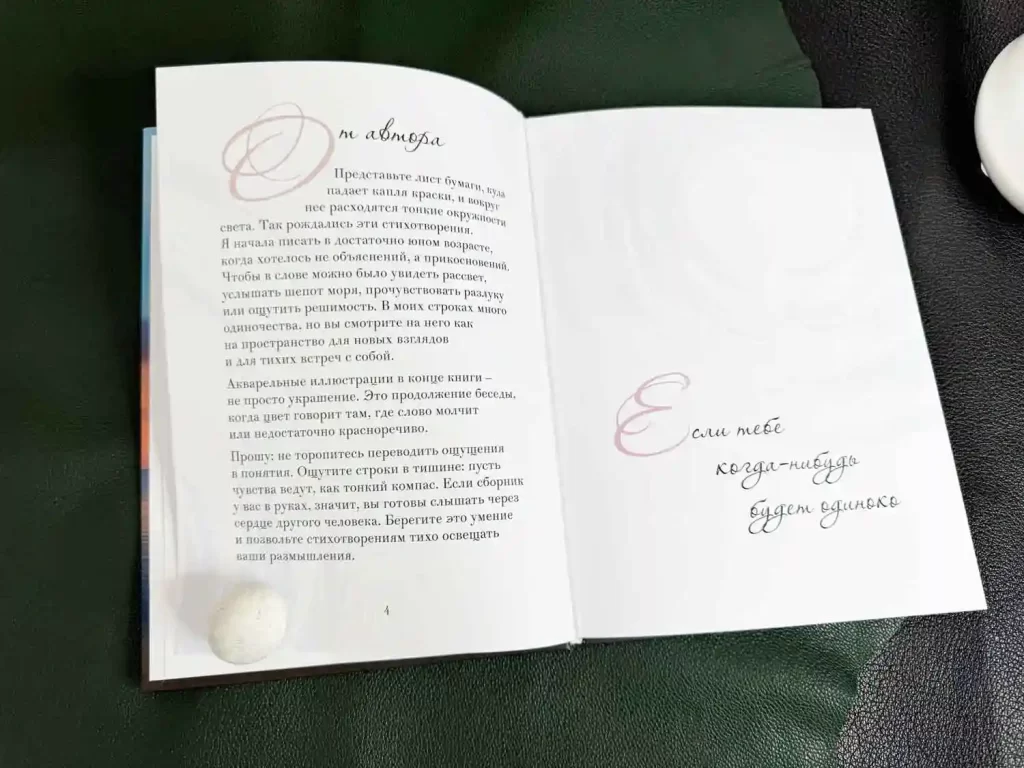 От автора
Представьте лист бумаги, куда
падает капля краски, и вокруг
нее расходятся тонкие окружности
света. Так рождались эти стихотворения.
Я начала писать в достаточно юном возрасте,
когда хотелось не объяснений, а прикосновений.
Чтобы в слове можно было увидеть рассвет,
услышать шепот моря, прочувствовать разлуку
или ощутить решимость. В моих строках много
одиночества, но вы смотрите на него как
на пространство для новых взглядов
и для тихих встреч с собой.
Акварельные иллюстрации в конце книги –
не просто украшение. Это продолжение беседы,
когда цвет говорит там, где слово молчит
или недостаточно красноречиво.
Прошу: не торопитесь переводить ощущения
в понятия. Ощутите строки в тишине: пусть
чувства ведут, как тонкий компас. Если сборник
у вас в руках, значит, вы готовы слышать через
сердце другого человека. Берегите это умение
и позвольте стихотворениям тихо освещать
ваши размышления.
4
Если тебе
когда-нибудь
будет одиноко